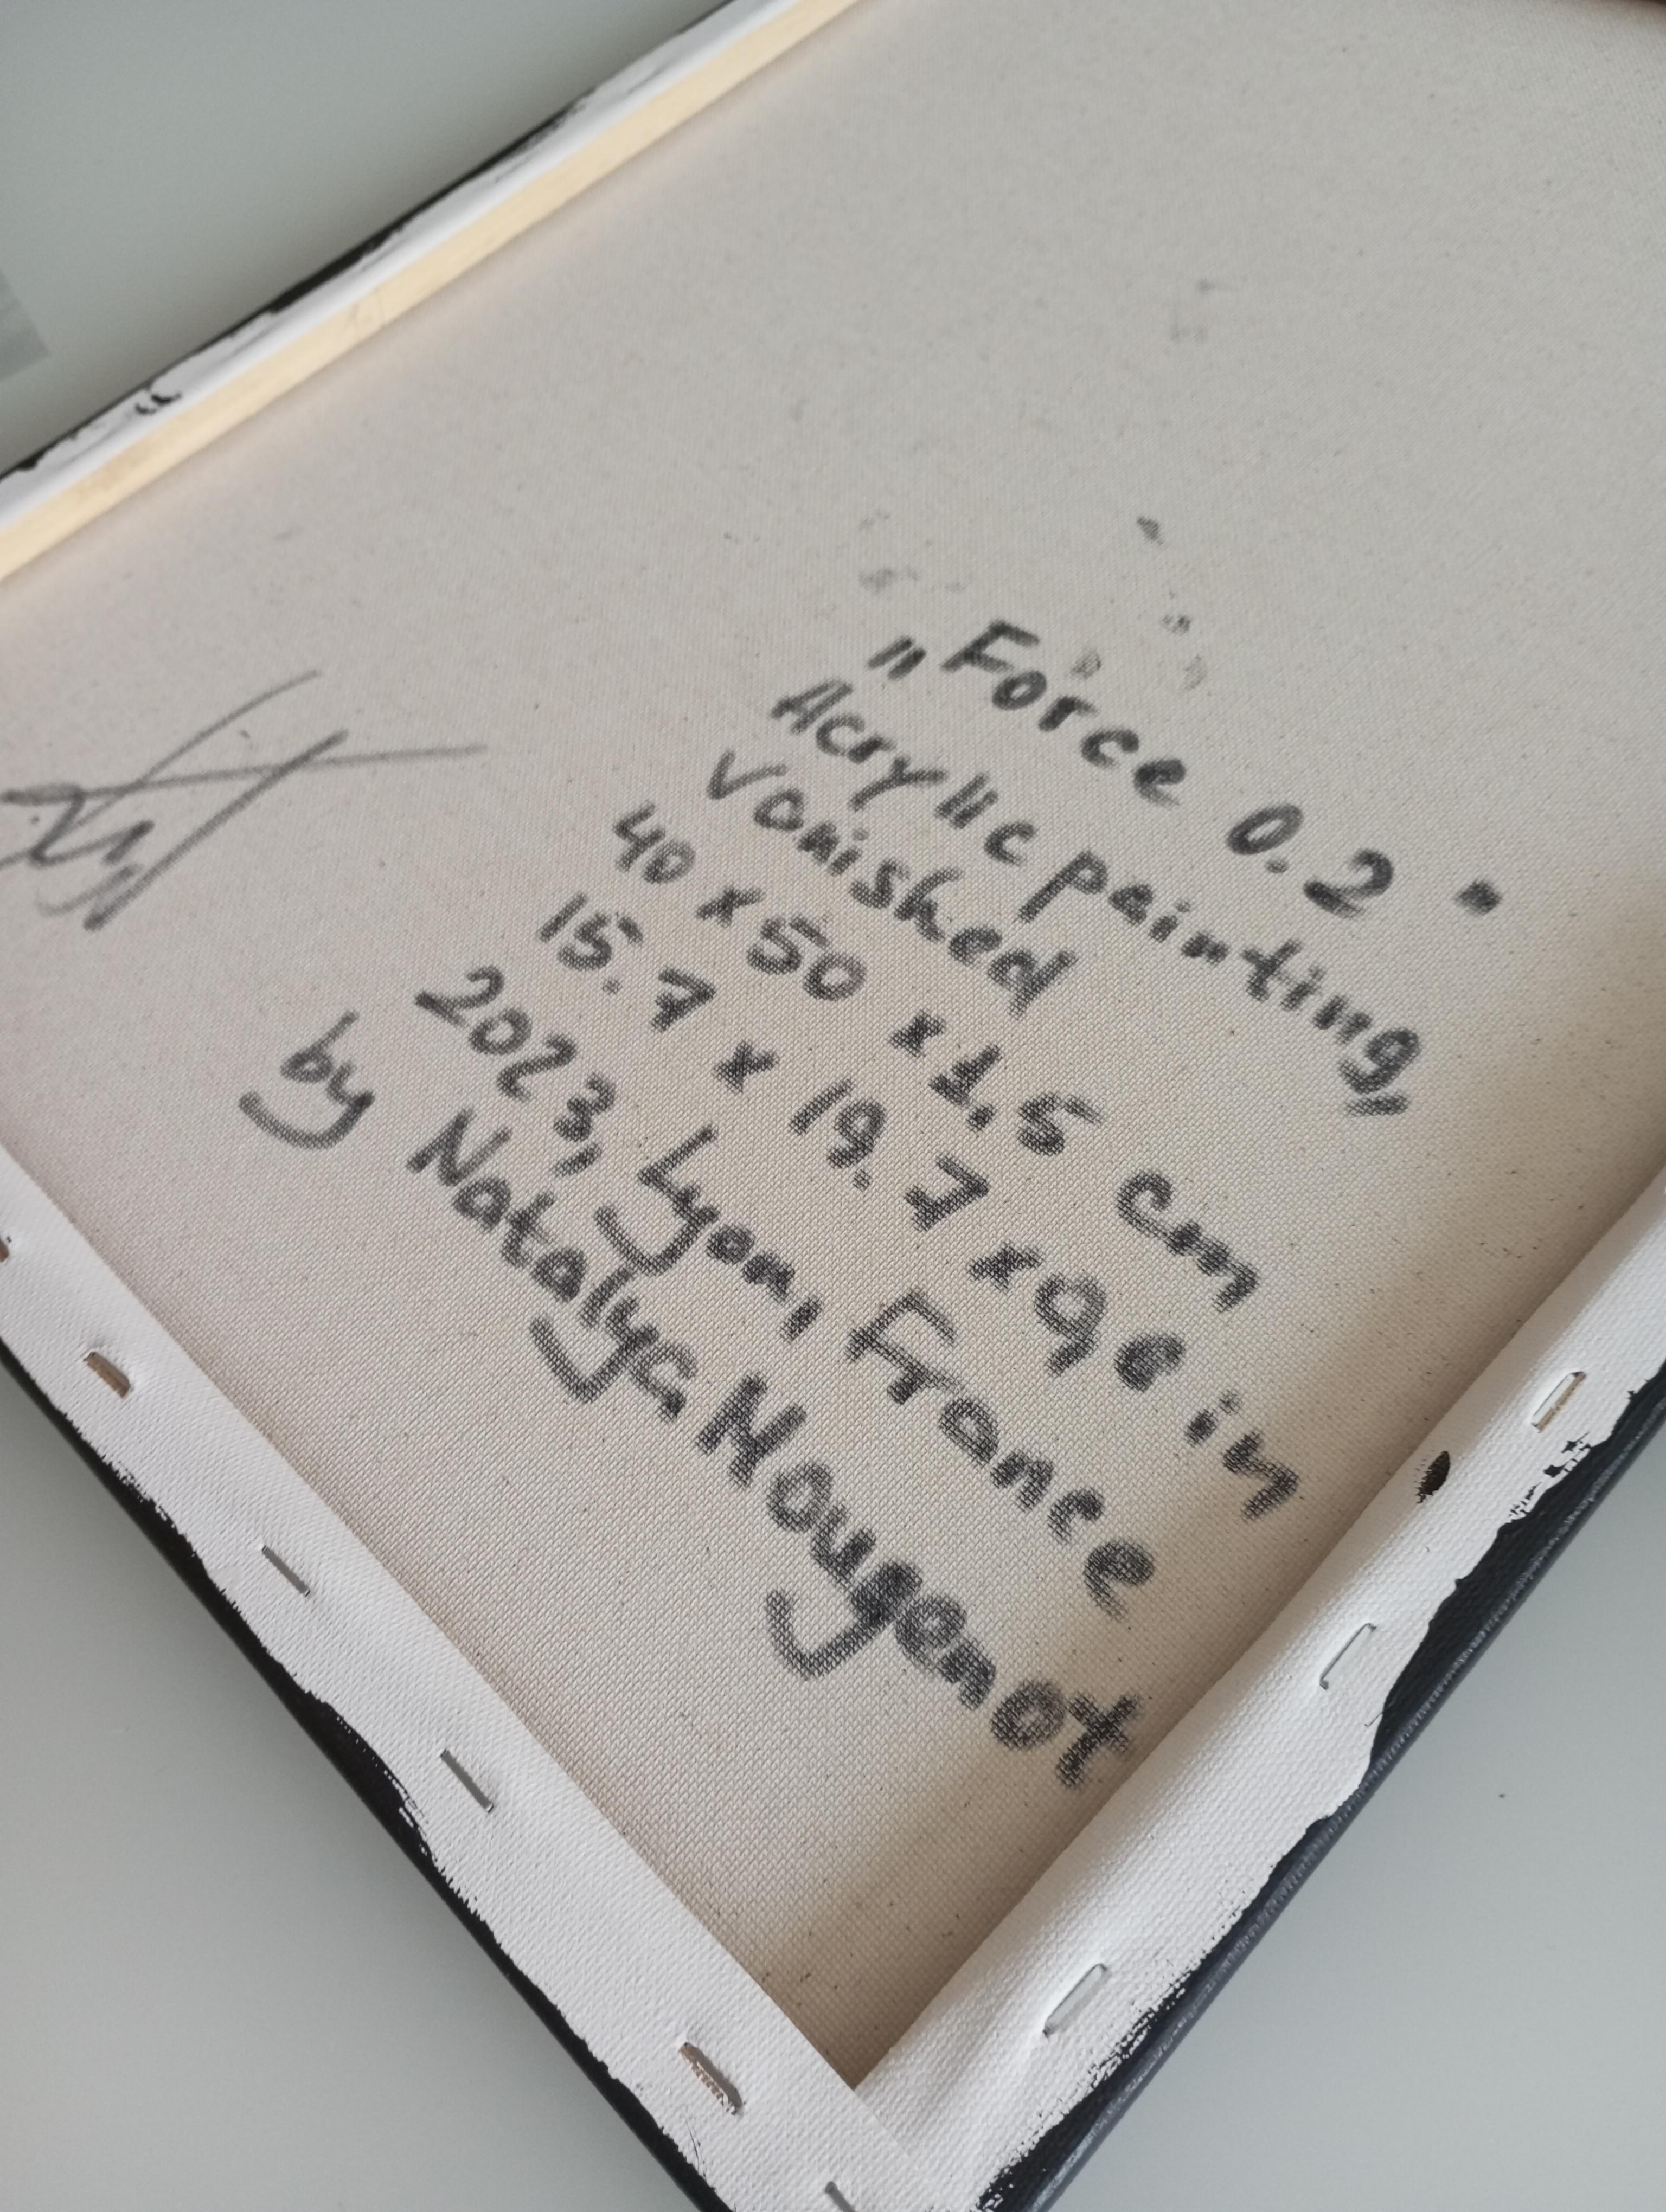 „Force 0.2"
Acrylic painting,
Vanished
40 x 50 x 1.5 cm
15.7 x 19.7 x 9 in
2023, Lyon, France
by Nataly Nougenot